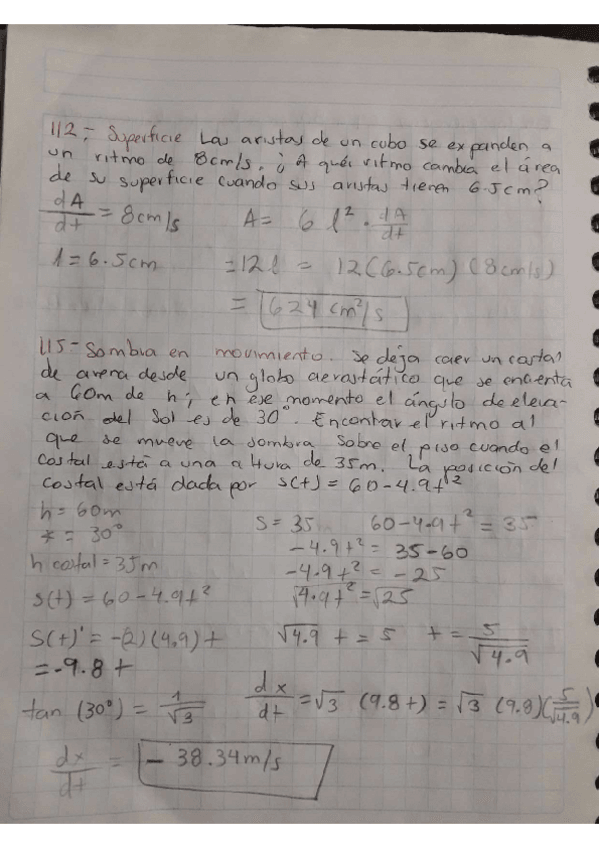 112.- Superficie Las aristas de un cubo se expanden a
un ritmo de 8cm/s. ¿A quér ritmo cambia el área
de su superficie cuando sus aristas tienen 6.5cm?
dA/dt = 8cm/s A = 6 l² · dA/dt
l = 6.5cm = 12 l = 12(6.5cm)(8cm/s)
= 624 cm²/s
115- Sombra en movimiento. Se deja caer un costal
de arena desde un globo aerostático que se encuenta
a 60m de h; en ese momento el ángulo de eleva-
ción del Sol es de 30°. Encontar el ritmo al
que se mueve la sombra sobre el piso cuando el
costal está a una altura de 35m. La posición del
costal está dada por s(t) = 60-4.9t²
h = 60m S = 35m 60-4.9t² = 35
* = 30° -4.9t² = 35-60
h costal = 35m -4.9t² = -25
s(t) = 60-4.9t² √4.9t² = √25
S(t)' = -(2)(4.9)t √4.9 t = 5 t = 5/√4.9
= -9.8t
tan (30°) = 1/√3 dx/dt = √3 (9.8t) = √3 (9.8)(5/√4.9)
dx/dt = - 38.34m/s